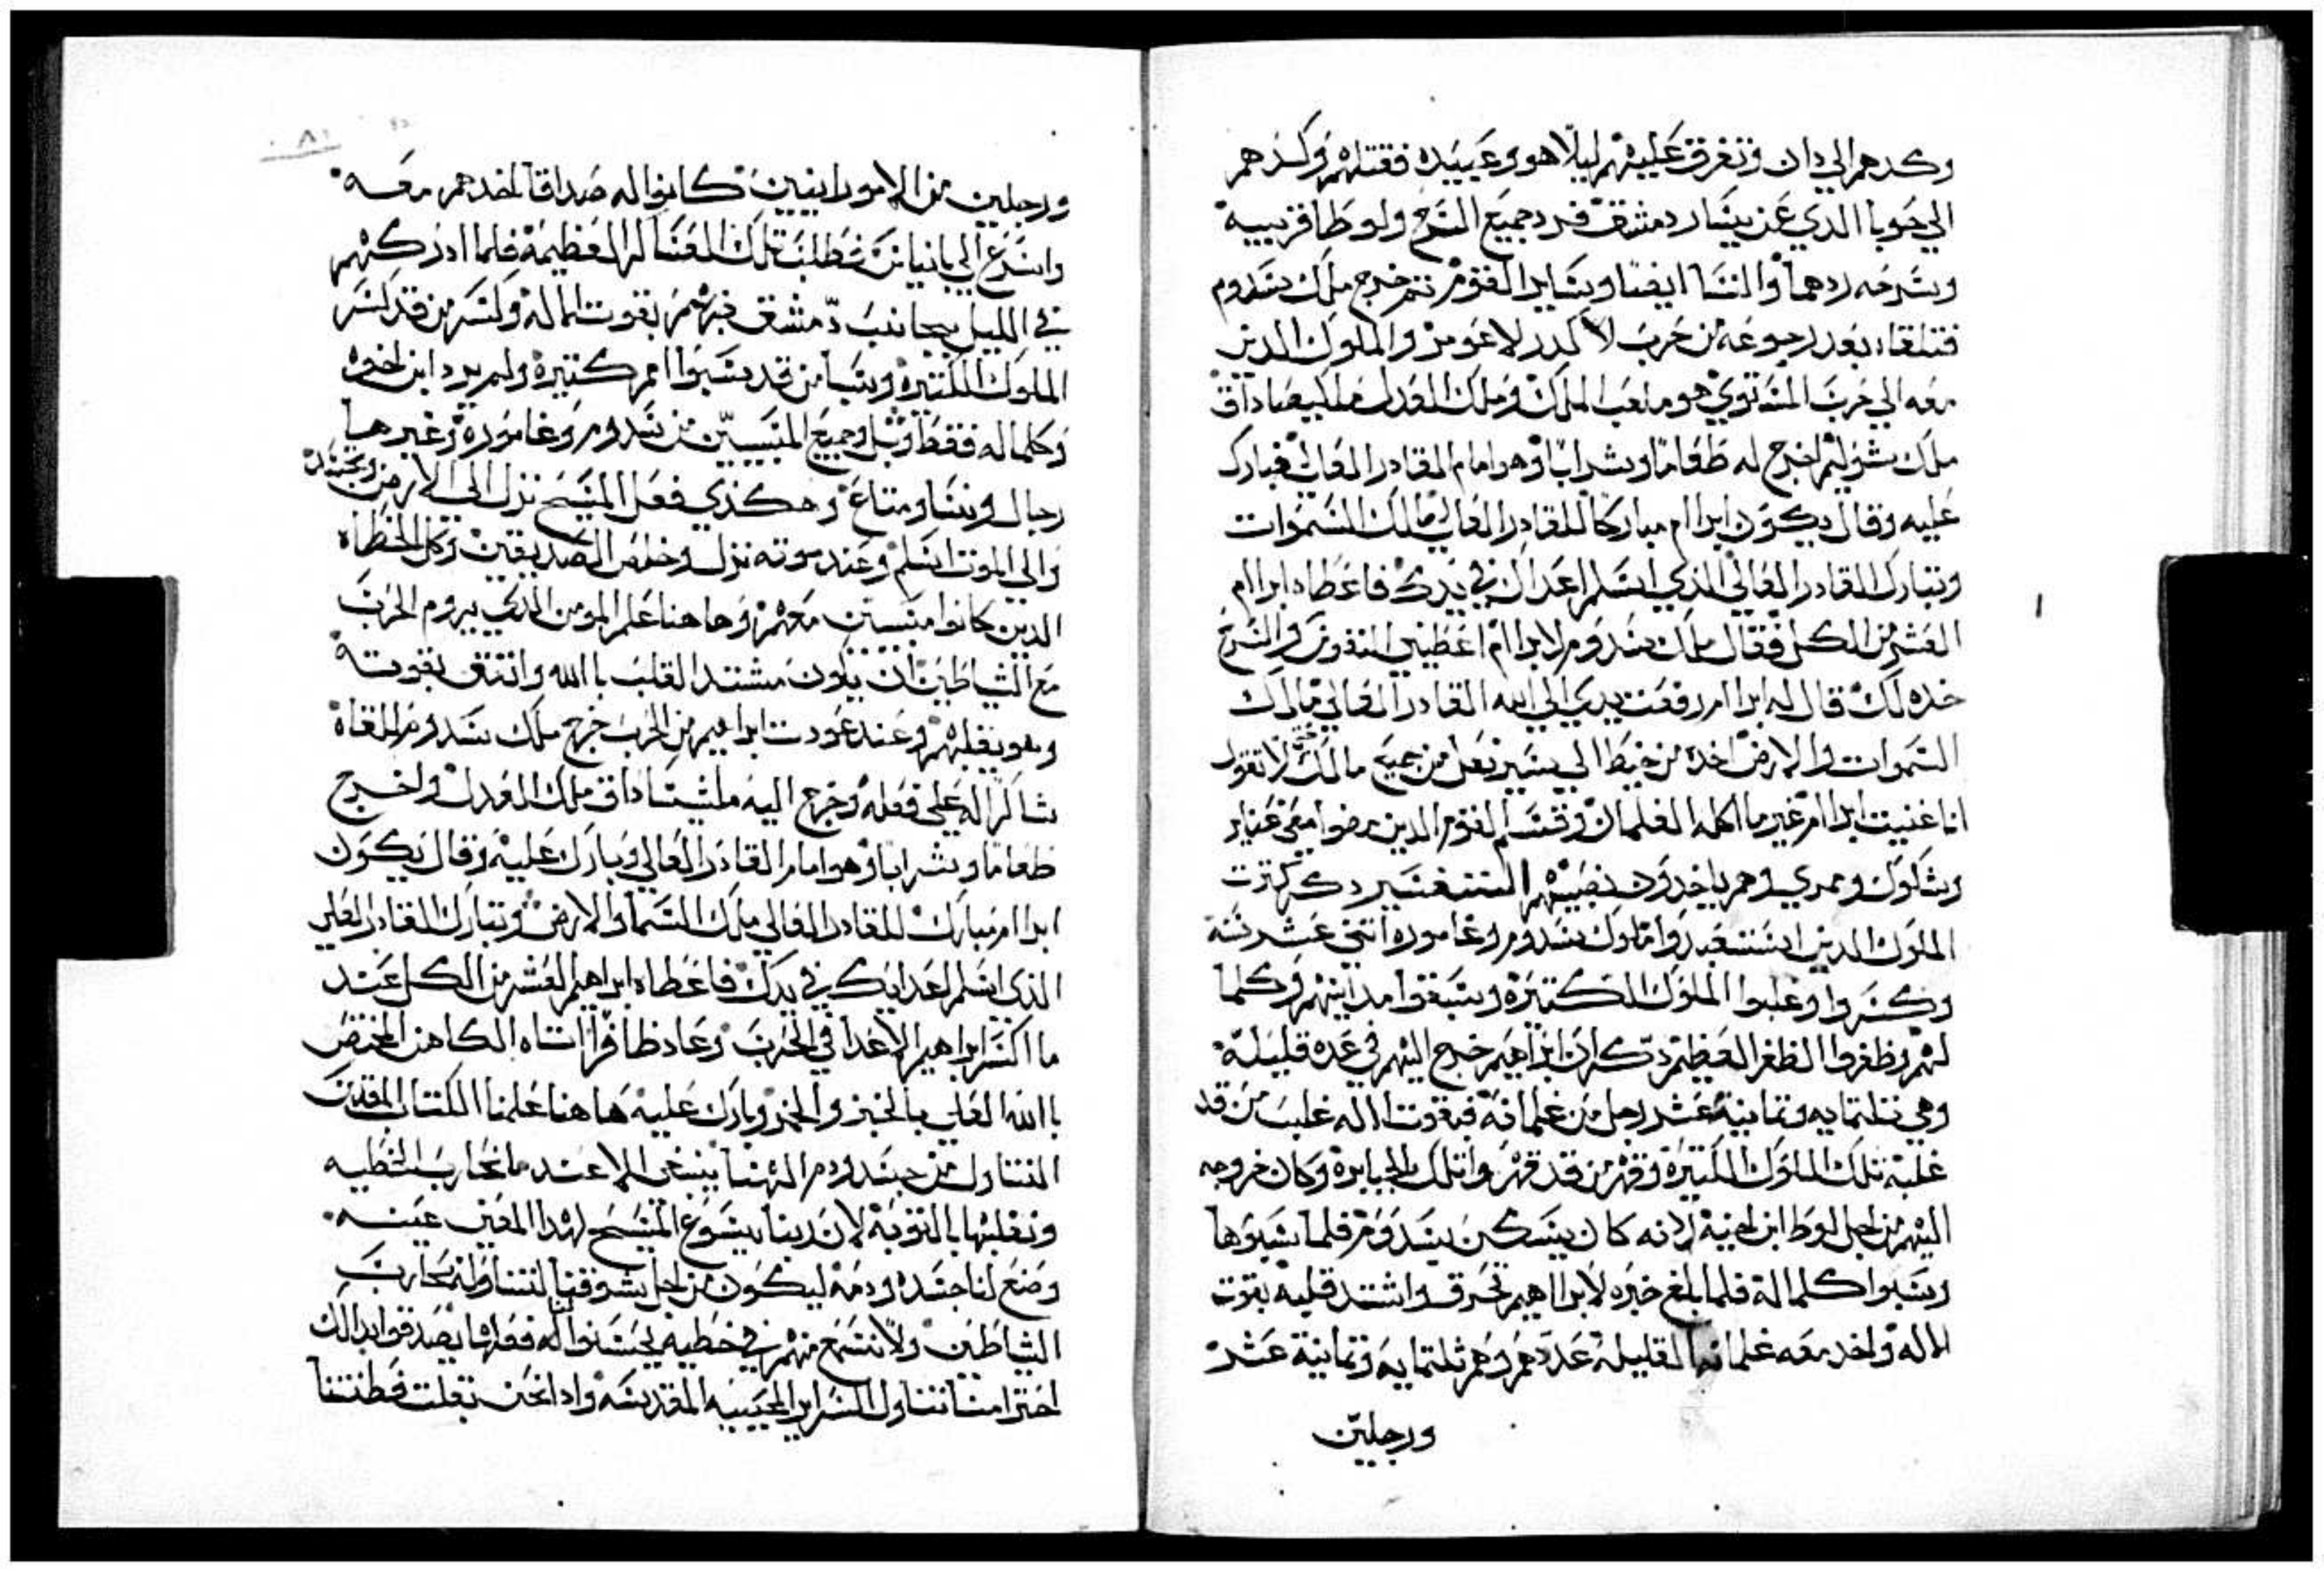 وكدهم الي دان وتفرق عليهم ليلا هو وعبيده فقتلهم وكدهم
الي حوبا الدي عن يسار دمشق فرد جميع السرح ولوطا قريبه
وسرحه ردهما والنسا ايضا وساير القوم تم خرج ملك سدوم
فتلقاه بعد رجوعه من حرب لا كدر لاعومر والملوك الدين
معه الي حرب المستوي هو ملعب الملك وملك العدل ملكيصاداق
ملك شوليم اخرج له طعاما وشرابا وهو امام القادر العال فبارك
عليه وقال يكون ابراام مباركا للقادر العالي مالك السموات
وتبارك القادر العالي الذي اسلم اعداك في يدك فاعطاه ابراام
العشر من الكل فقال ملك سدوم لابراام اعطيني النفوس والسرح
خده لك قال له ابراام رفعت يدي الي الله القادر العالي مالك
السموات والارض اخد من خيط الي سير نعل من جميع مالك لا تقول
انا غنيت ابراام غير ما اكله الغلمان وقسم القوم الدين مضوا معي عناير
وشكول وممري وهم ياخدون نصيبهم التفسير دكر كترت
الملوك الدين استعبدوا ملوك سدوم وغاموره اتني عشر سنه
وكسروا وغلبوا الملوك الكتيره وسبقوا مداينهم وكلما
لهم وظفروا الظفر العظيم دكر ان ابراهيم خرج اليهم في عده قليله
وهي تلتمايه وتمانية عشر رجل من غلمانه فبقوت الاله غلب من قد
غلبه تلك الملوك الكتيرة وقهر من قد قهروا تلك الجبابره وكان خروجه
اليهم من اجل لوط ابن اخيه لانه كان يسكن سدوم فلما سبوها
وسبوا كلما له فلما بلغ خبره لابراهيم تحرق واشتد قلبه بقوت
الاله واخد معه غلمانه القليله عددهم وهم ثلتمايه وتمانية عشر
ورجلين
ورجلين من الاموراينين كانوا له صداقا اخدهم معه
واسرع الي بانياس فطلب تلك العساكر العظيمة فلما ادركهم
في الليل بجانب دمشق فهزمهم بقوت الاله وكسر من قد كسر
الملوك الكتيرة وسبا من قد سبوا امم كتيرة ولم يرد ابن اخيه
وكلما له فقط وبل وجميع المسبيين من سدوم وغامورة وغيرها
رجال ونسا ومتاع وهكذي فعل المسيح نزل الى الارض وتجسد
والى الموت اسلم وعند موته نزل وخلص الصديقين وكل الخطاه
الدين كانوا مسبين معهم وهاهنا علم المومن الدي يروم الحرب
مع الشياطين ان يكون مشتد القلب با الله واتتق بقوته
وهو يغلبهم وعند عودت ابراهيم من الحرب خرج ملك سدوم للقاه
شاكرا له على فعله وخرج اليه ملشيساداق ملك العدل واخرج
طعاما وشرابا وهو امام القادر العالي وبارك عليه وقال يكون
ابراام مبارك للقادر العالي ملك السما والارض وتبارك القادر العلي
الذي اسلم اعدايك في يدك فاعطاه ابراهيم العشر من الكل عند
ما اكسر ابراهيم الاعدا في الحرب وعاد ظافرا اتاه الكاهن المختص
با الله العلي بالخبز والخمر وبارك عليه هاهنا علمنا الكتاب المقدس
التناول من جسد ودم الهنا ينبغي الا عند ما نحارب الخطيه
ونغلبها بالتوبة لان ربنا يسوع المسيح لهدا المعني عينه
وضع لنا جسده ودمه ليكون من اجل تشوقنا لتناوله نحارب
الشياطين ولا نسمع منهم في خطيه لحسنوا له فعلها يصدقوا بدالك
احتراسنا نتناول السراير المحييه المقدسه وادا نحن تغلت فطنتنا